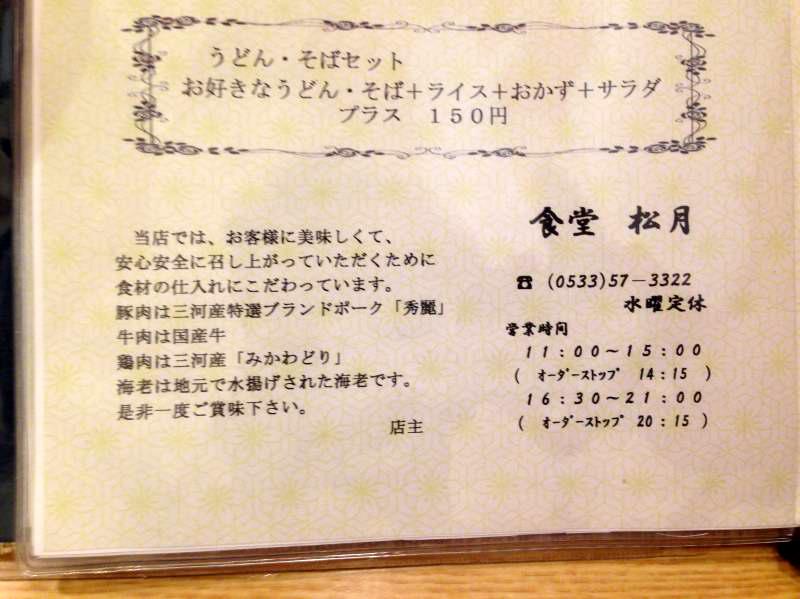 うどん・そばセット
お好きなうどん・そば＋ライス＋おかず＋サラダ
プラス　１５０円
当店では、お客様に美味しくて、
安心安全に召し上がっていただくために
食材の仕入れにこだわっています。
豚肉は三河産特選ブランドポーク「秀麗」
牛肉は国産牛
鶏肉は三河産「みかわどり」
海老は地元で水揚げされた海老です。
是非一度ご賞味下さい。
店主
食堂　松月
☎ (0533)57－3322
水曜定休
営業時間
１１：００～１５：００
(　ｵｰﾀﾞｰｽﾄｯﾌﾟ　14：15　)
１６：３０～２１：００
(　ｵｰﾀﾞｰｽﾄｯﾌﾟ　20：15　)